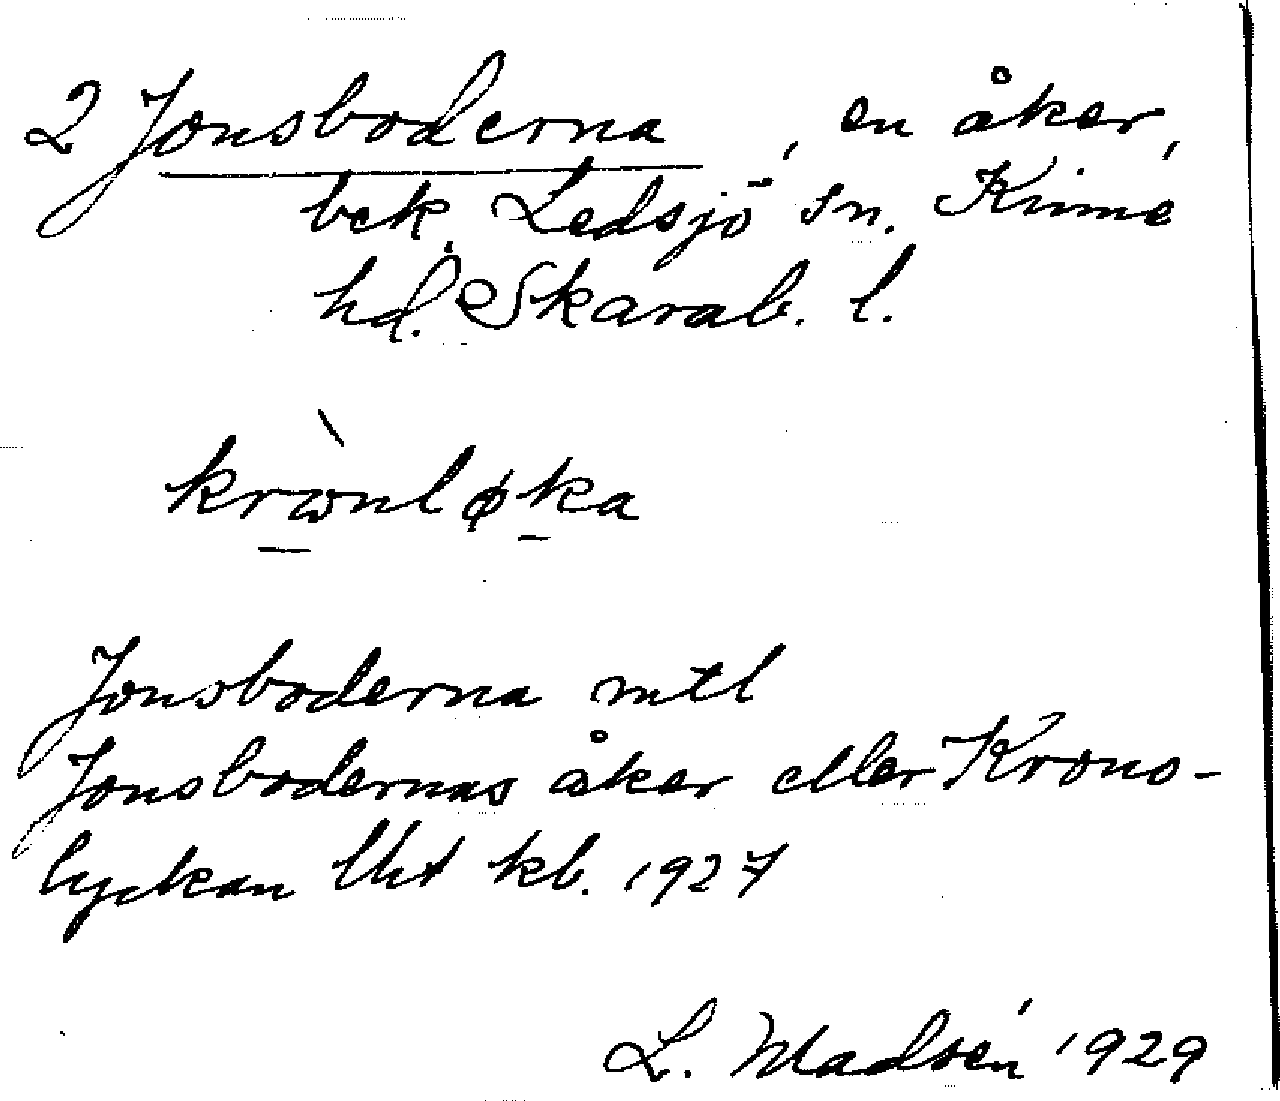 2 Jonsboderna, en åker,
bck. Ledsjö sn. Kinne
hd. Skarab. l.
krònløka
Jonsboderna mtl
Jonsbodernas åker eller Krono-
lyckan Uht kb. 1927
L. Madsén 1929